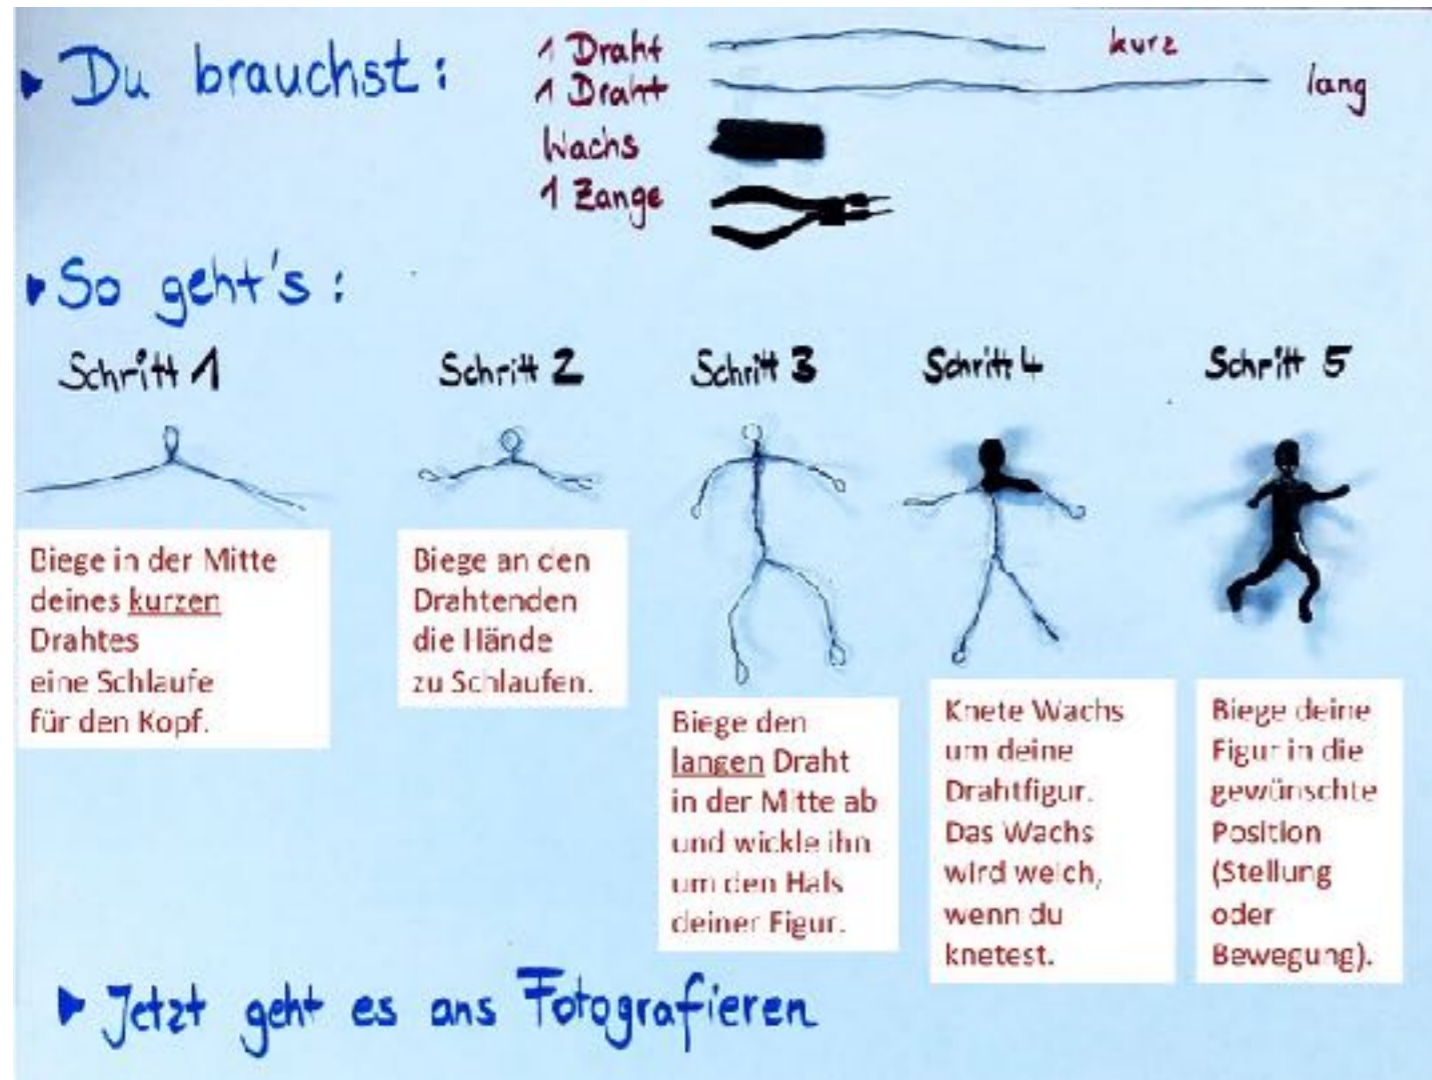 ▸ Du brauchst:
1 Draht kurz
1 Draht lang
Wachs
1 Zange
▸ So geht's:
Schritt 1
Biege in der Mitte
deines kurzen
Drahtes
eine Schlaufe
für den Kopf.
Schritt 2
Biege an den
Drahtenden
die Hände
zu Schlaufen.
Schritt 3
Biege den
langen Draht
in der Mitte ab
und wickle ihn
um den Hals
deiner Figur.
Schritt 4
Knete Wachs
um deine
Drahtfigur.
Das Wachs
wird weich,
wenn du
knetest.
Schritt 5
Biege deine
Figur in die
gewünschte
Position
(Stellung
oder
Bewegung).
▸ Jetzt geht es ans Fotografieren